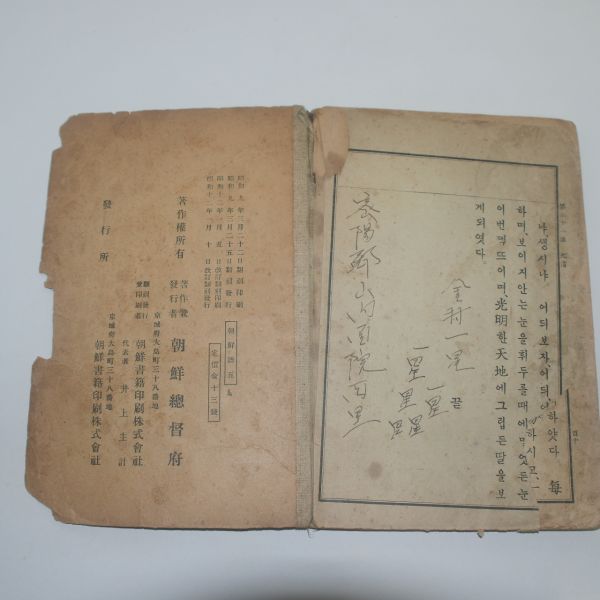 나、생시냐 어듸보자、어듸
하며、보이지안는눈을휘두를때에、무엇든눈
이번쩍뜨이며、光明한天地에그립든딸을보
게되엿다.
끝
하얏다
하시고、一
每
密陽郡山內面院西里
金村一星
一星
一星
昭和九年三月二十二日翻刻印刷
昭和九年三月二十五日翻刻發行
昭和十二年一月五日改訂翻刻印刷
昭和十二年一月十日改訂翻刻發行
朝鮮語五
定價金十三錢
著作權所有
著作兼發行者
朝鮮總督府
京城府大島町三十八番地
翻刻發行兼印刷者
朝鮮書籍印刷株式會社
代表者 井上主計
發行所
京城府大島町三十八番地
朝鮮書籍印刷株式會社